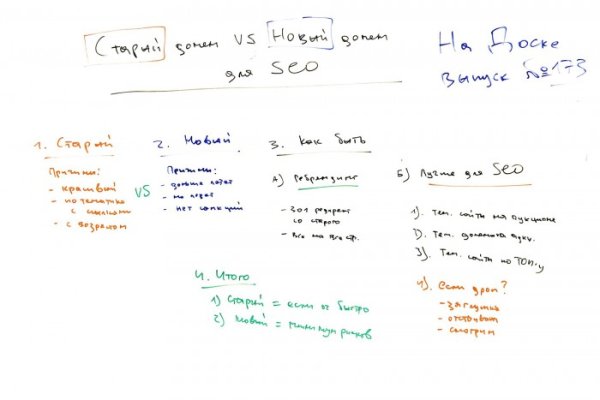 Старый домен VS Новый домен
для SEO
На Доске
выпуск №173
1. Старый
Причины:
- красивый
- по тематике
с ссылками
- с возрастом
VS
2. Новый
Причины:
- дольше
- нет санкций
3. Как быть
А) Ребрендинг
- 301 редирект
со старого
- все на все стр.
Б) Лучше для SEO
1). Тем. сайты на аукционе
2). Тем. домены
3). Тем. сайты по ТОП-у
4). Если дроп?
- заглушка
- отстаиваем
- смотрим
4. Итого
1) Старый = если оч быстро
2) Новый = минимум рисков